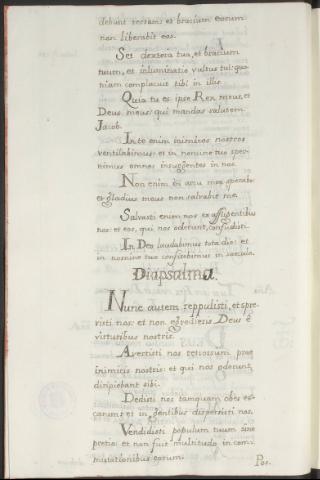 debunt terram: et brachium eorum
non liberabit eos.
Set dextera tua, et brachium
tuum, et inluminatio vultus tui: quo
niam complacuit tibi in illis.
Quia tu es ipse Rex meus, et
Deus meus: qui mandas salutem
Jacob.
In te enim inimicos nostros
ventilabimus: et in nomine tuo sper
nimus omnes insurgentes in nos.
Non enim in arcu meo sperabo:
et gladius meus non salvabit me.
Salvasti enim nos ex affligentibus
nos: et eos, qui nos oderunt, confudisti.
In Deo laudabimur tota die: et
in nomine tuo confitebimur in saecula.
Diapsalma.
Nunc autem reppulisti, et spre
visti nos: et non egredieris Deus in
virtutibus nostris.
Avertisti nos retrorsum prae
inimicis nostris: et qui nos oderunt,
diripiebant sibi.
Dedisti nos tamquam obes es
carum: et in gentibus dispersisti nos.
Vendidisti populum tuum sine
pretio: et non fuit multitudo in com
mutationibus eorum.
Pos.